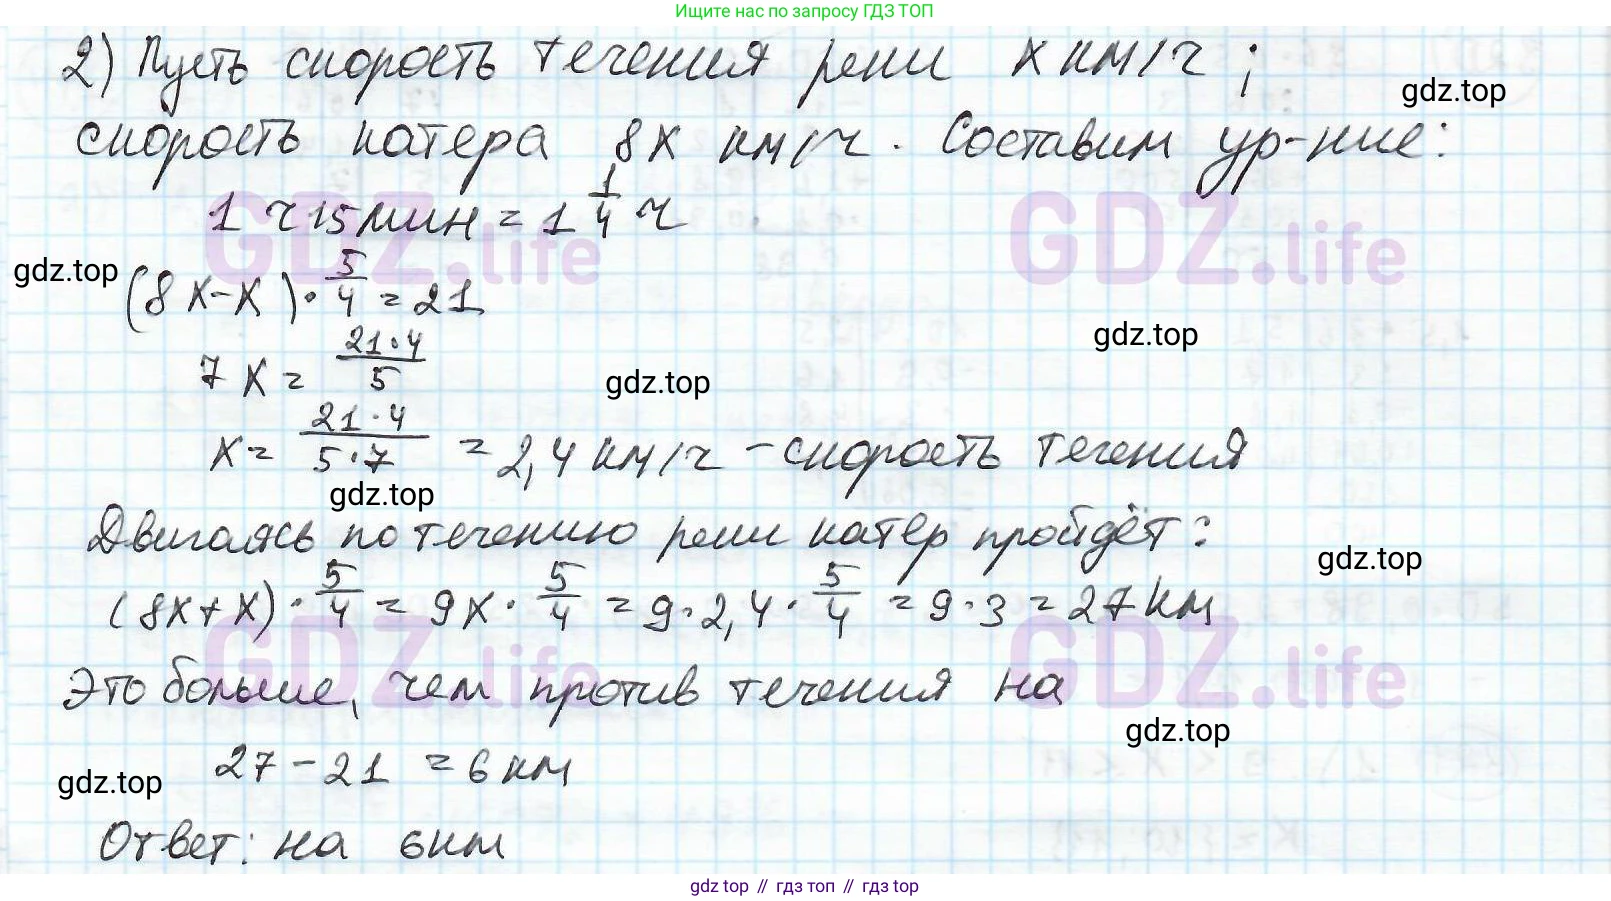 Ищите нас по запросу ГДЗ ТОП
2) Пусть скорость течения реки х км/ч ;
gdz.top
скорость катера 8х км/ч. Составим ур-ние:
1 ч 15 мин = 1 1/4 ч
GDZ.life GDZ.life
gdz.top
(8х-х)·5/4 = 21
gdz.top
7х = 21·4/5
gdz.top
х = 21·4/5·7 = 2,4 км/ч - скорость течения
gdz.top
Двигаясь по течению реки катер пройдёт:
gdz.top
(8х+х)·5/4 = 9х·5/4 = 9·2,4·5/4 = 9·3 = 27 км
GDZ.life GDZ.life
Это больше, чем против течения на
gdz.top
27 - 21 = 6 км
gdz.top
Ответ: на 6 км
gdz top // гдз топ // гдз top